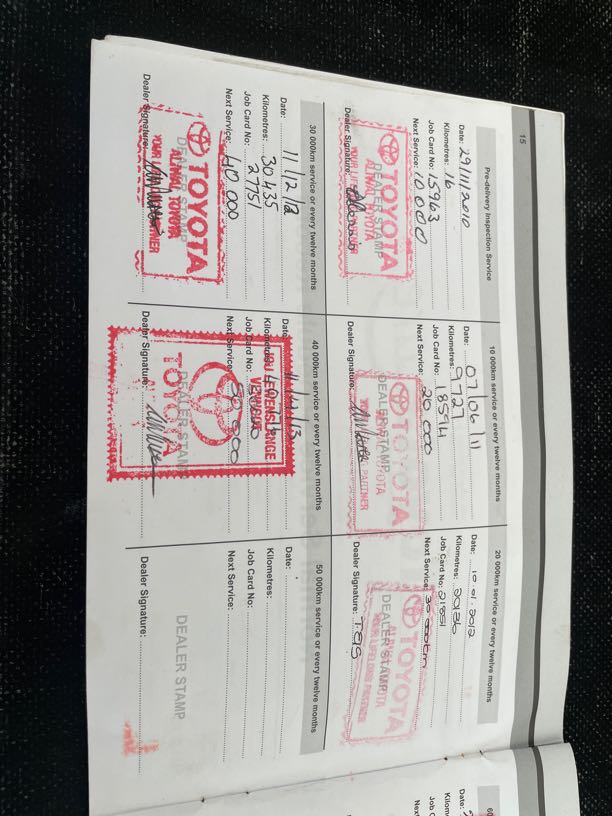 15
Pre-delivery Inspection Service
Date: 29/11/2010
Kilometres: 16
Job Card No: 15963
Next Service: 10 000
Dealer Signature:
TOYOTA
DEALER STAMP
ALIWAL TOYOTA
10 000km service or every twelve months
Date: 07/06/11
Kilometres: 9727
Job Card No: 18594
Next Service: 20 000
Dealer Signature:
TOYOTA
DEALER STAMP
PARTNER
20 000km service or every twelve months
Date: 10.01.2012
Kilometres: 20136
Job Card No: 21851
Next Service: 30 000km
Dealer Signature:
TOYOTA
DEALER STAMP
YOUR LIFELONG PARTNER
30 000km service or every twelve months
Date: 11/12/12
Kilometres: 30435
Job Card No: 27751
Next Service: 40 000
Dealer Signature:
TOYOTA
DEALER STAMP
ALIWAL TOYOTA
40 000km service or every twelve months
Date: 11/12/13
Kilometres:
Job Card No:
Next Service: 50 000
Dealer Signature:
JOU LEWENSLANGE
VENNOOT
DEALER STAMP
TOYOTA
50 000km service or every twelve months
Date:
Kilometres:
Job Card No:
Next Service:
Dealer Signature:
DEALER STAMP
60
Date:
Kilom
Job C
Next